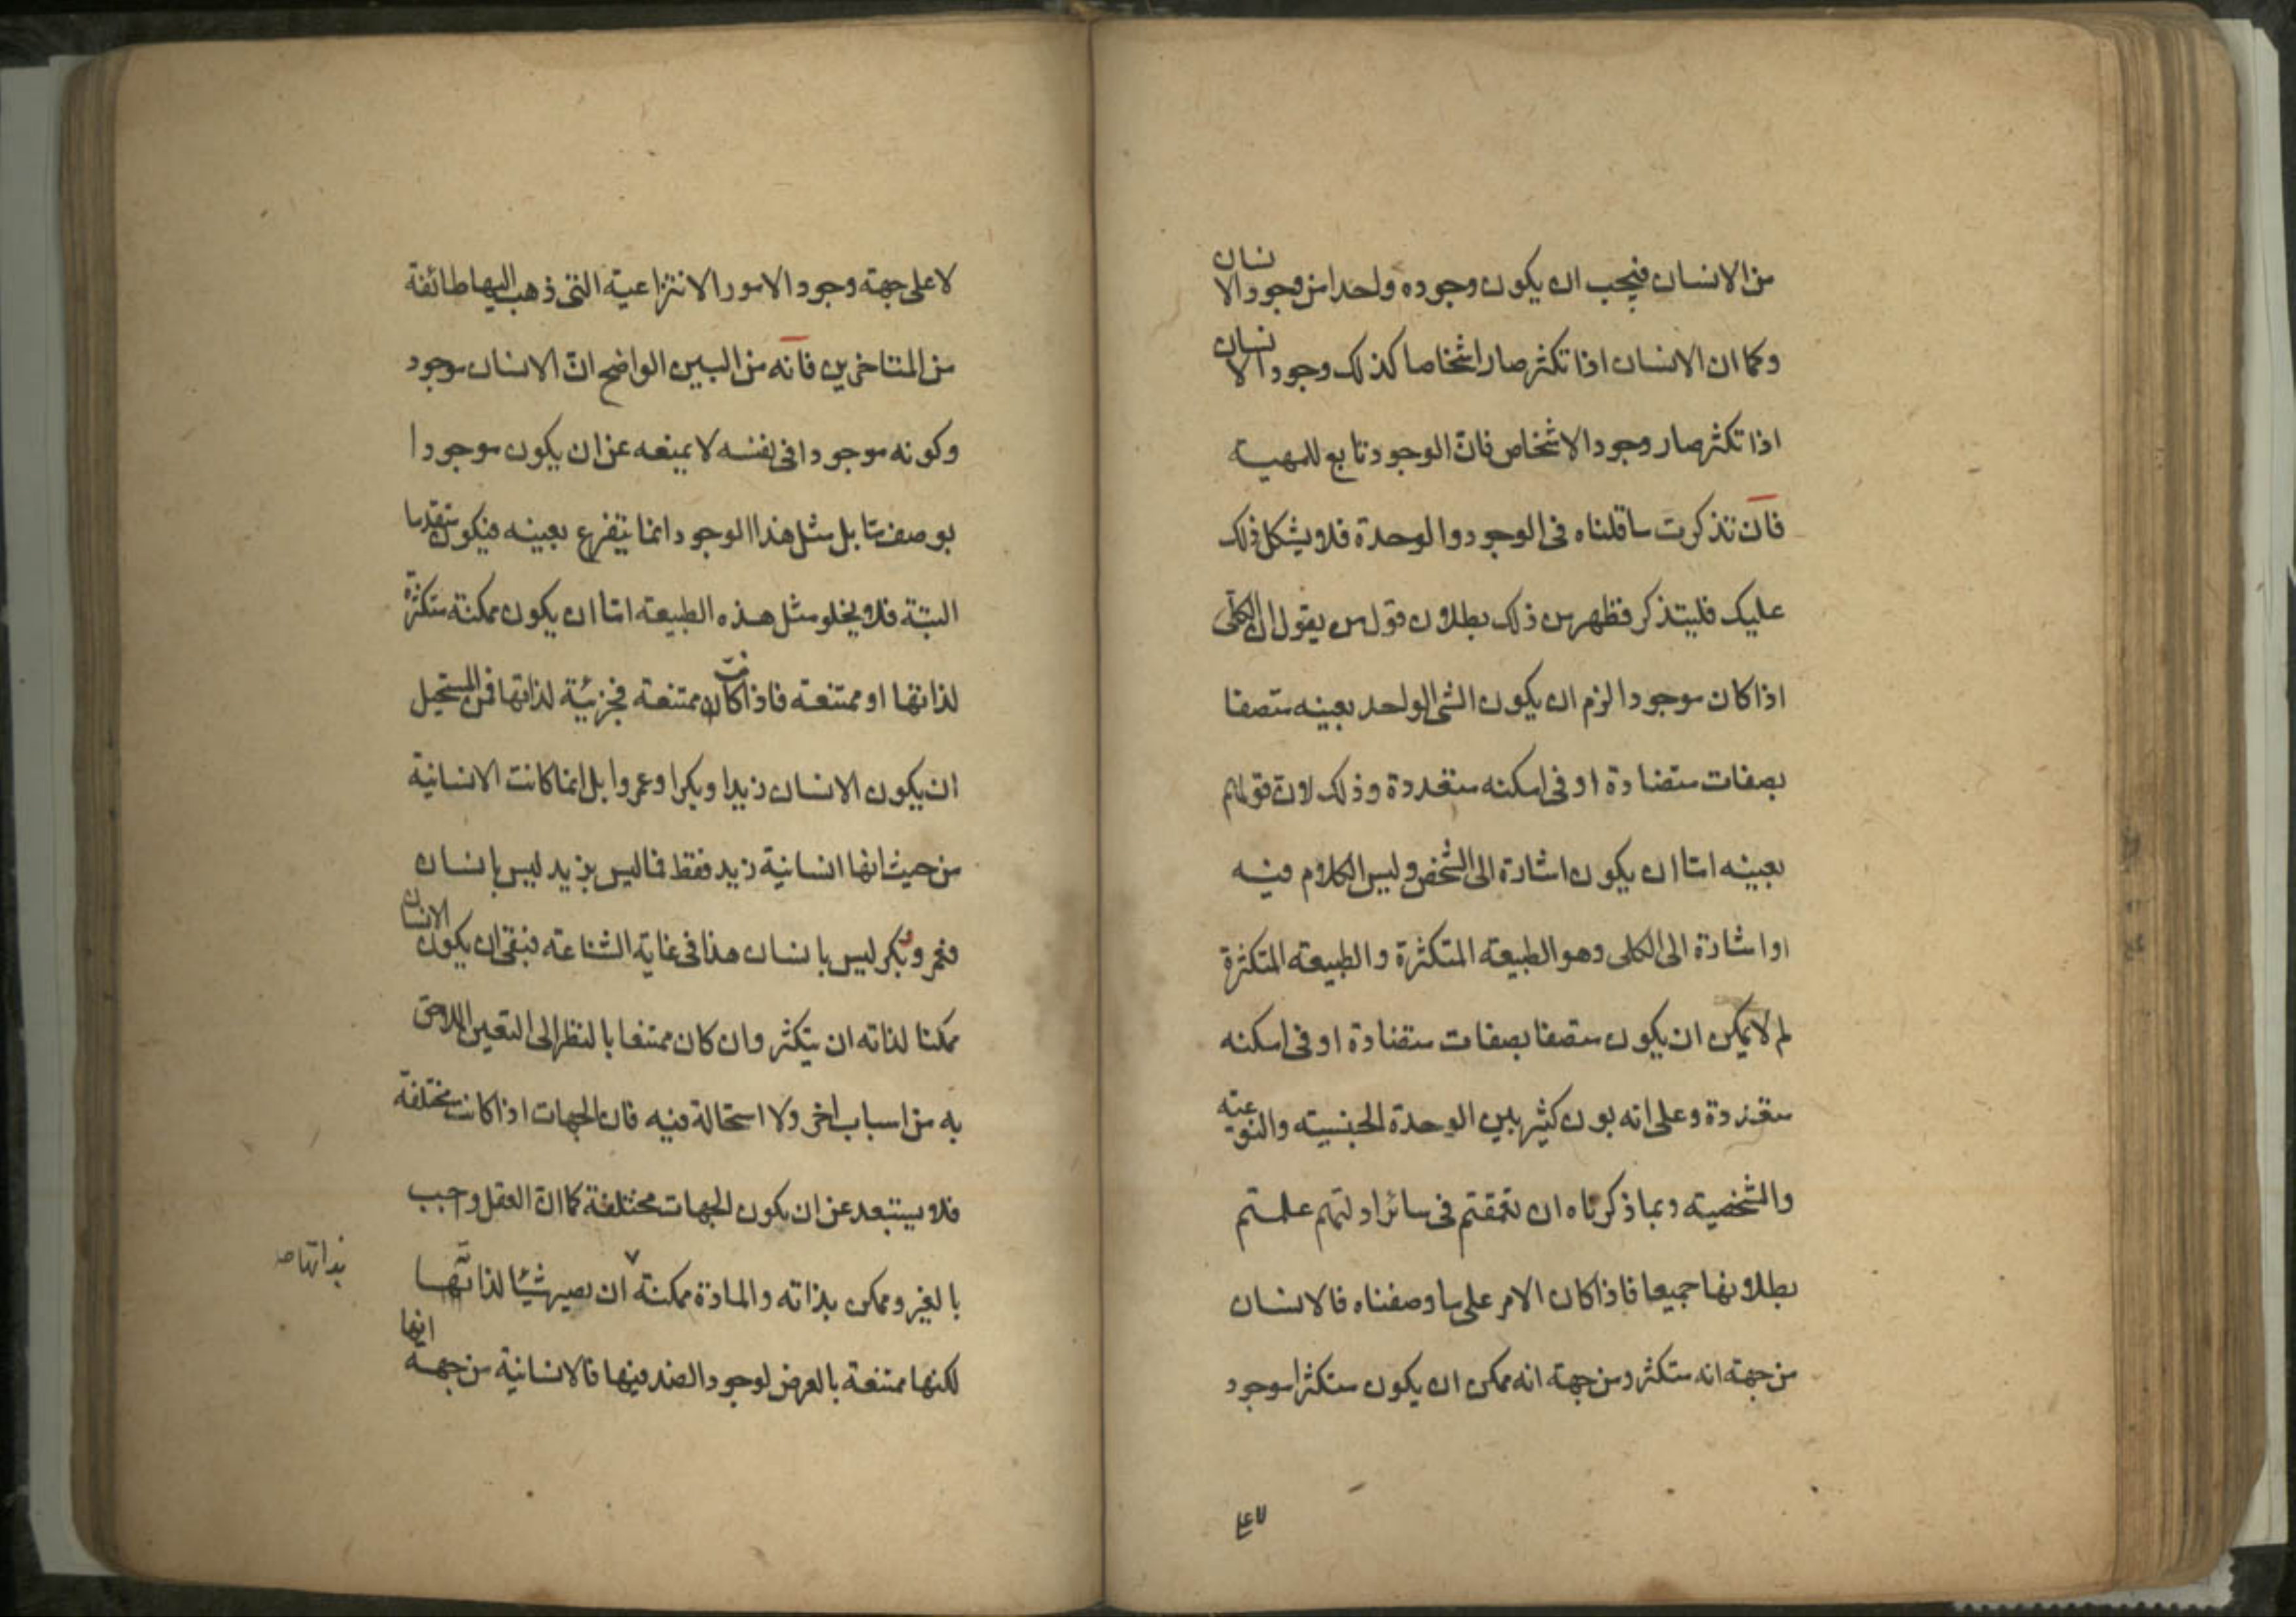 من الانسان فيجب ان يكون وجوده واحدا من وجود الانسان
وكما ان الانسان اذا تكثر صار اشخاصا كذلك وجود الانسان
اذا تكثر صار وجود الاشخاص فانّ الوجود تابع للمهية
فان تذكرت ما قلناه فى الوجود والوحدة فلا يشكل ذلك
عليك فليتذكر فظهر من ذلك بطلان قول من يقول ان الكلّى
اذا كان موجودا لزم ان يكون الشى الواحد بعينه متصفا
بصفات متضادة او فى امكنه متعددة وذلك لانّ قولهم
بعينه امّا ان يكون اشارة الى الشخص وليس الكلام فيه
او اشارة الى الكلى وهو الطبيعه المتكثرة والطبيعه المتكثرة
لم لا يمكن ان يكون متصفا بصفات متضادة او فى امكنه
متعددة وعلى انه بون كثير بين الوحدة الجنسيته والنوعيته
والشخصيته وبما ذكرناه ان تعمقتم فى سائر ادلتهم علمتم
بطلانها جميعا فاذا كان الامر على ما وصفناه فالانسان
من جهته انه متكثر ومن جهته انه ممكن ان يكون متكثرا موجود
لا على جهته وجود الامور الانتزاعيته التى ذهب اليها طائفة
من المتاخرين فانه من البين الواضح انّ الانسان موجود
وكونه موجودا فى نفسه لا يمنعه عن ان يكون موجودا
بوصف مّا بل مثل هذا الوجود انما يتفرع بعينه فيكون متقدما
البتة فلا يخلو مثل هذه الطبيعته امّا ان يكون ممكنة متكثرة
لذاتها او ممتنعته فاذا كانت ممتنعة فجزئيّة لذاتها فمن المستحيل
ان يكون الانسان زيدا وبكرا وعمروا بل انما كانت الانسانية
من حيث انها انسانية زيد فقط فما ليس بزيد ليس بانسان
فعمر وبكر ليس بانسان هذا فى غاية الشناعته فبقى ان يكون الانسان
ممكنا لذاته ان يتكثر وان كان ممتنعا بالنظر الى التعين اللاحق
به من اسباب اخر ولا استحالة فيه فان الجهات اذا كانت مختلفة
فلا يستبعد عن ان يكون الجهات مختلفة كما انّ العقل وجب
بالغير وممكن بذاته والمادة ممكنته ان يصير شيئا لذاتها
بذاتها صه
لكنها ممتنعة بالعرض لوجود الضد فيها فالانسانية من جهته انها
٤٧